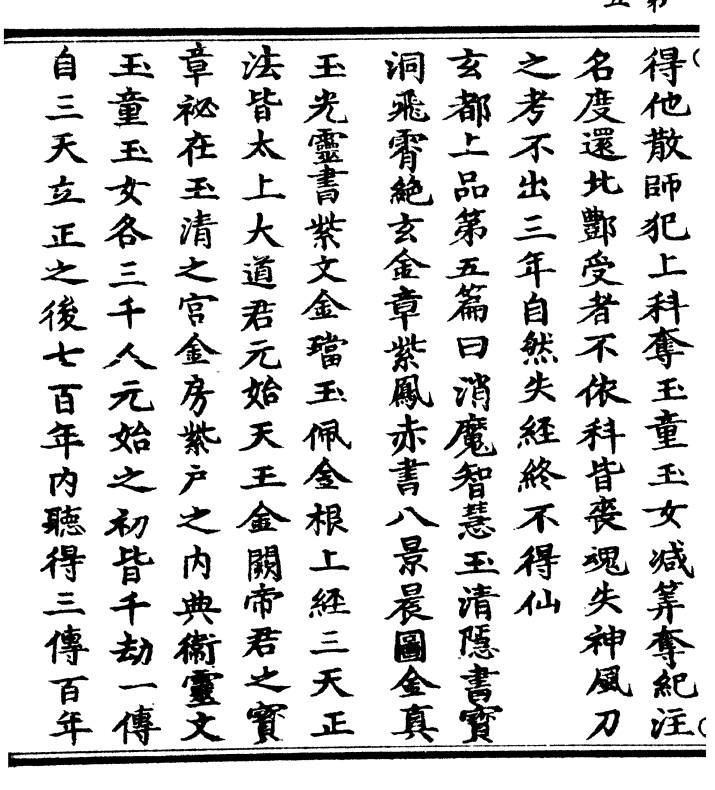 得他散師犯上科奪玉童玉女减筭奪紀注
名度還北酆受者不依科皆喪魂失神風刀
之考不出三年自然失經終不得仙
玄都上品第五篇曰消魔智慧玉清隱書寶
洞飛霄絶玄金章紫鳳赤書八景晨圖金真
玉光靈書紫文金璫玉佩金根上經三天正
法皆太上大道君元始天王金闕帝君之寳
章祕在玉清之宫金房紫户之内典衛靈文
玉童玉女各三千人元始之初皆千劫一傳
自三天立正之後七百年内聽得三傳百年